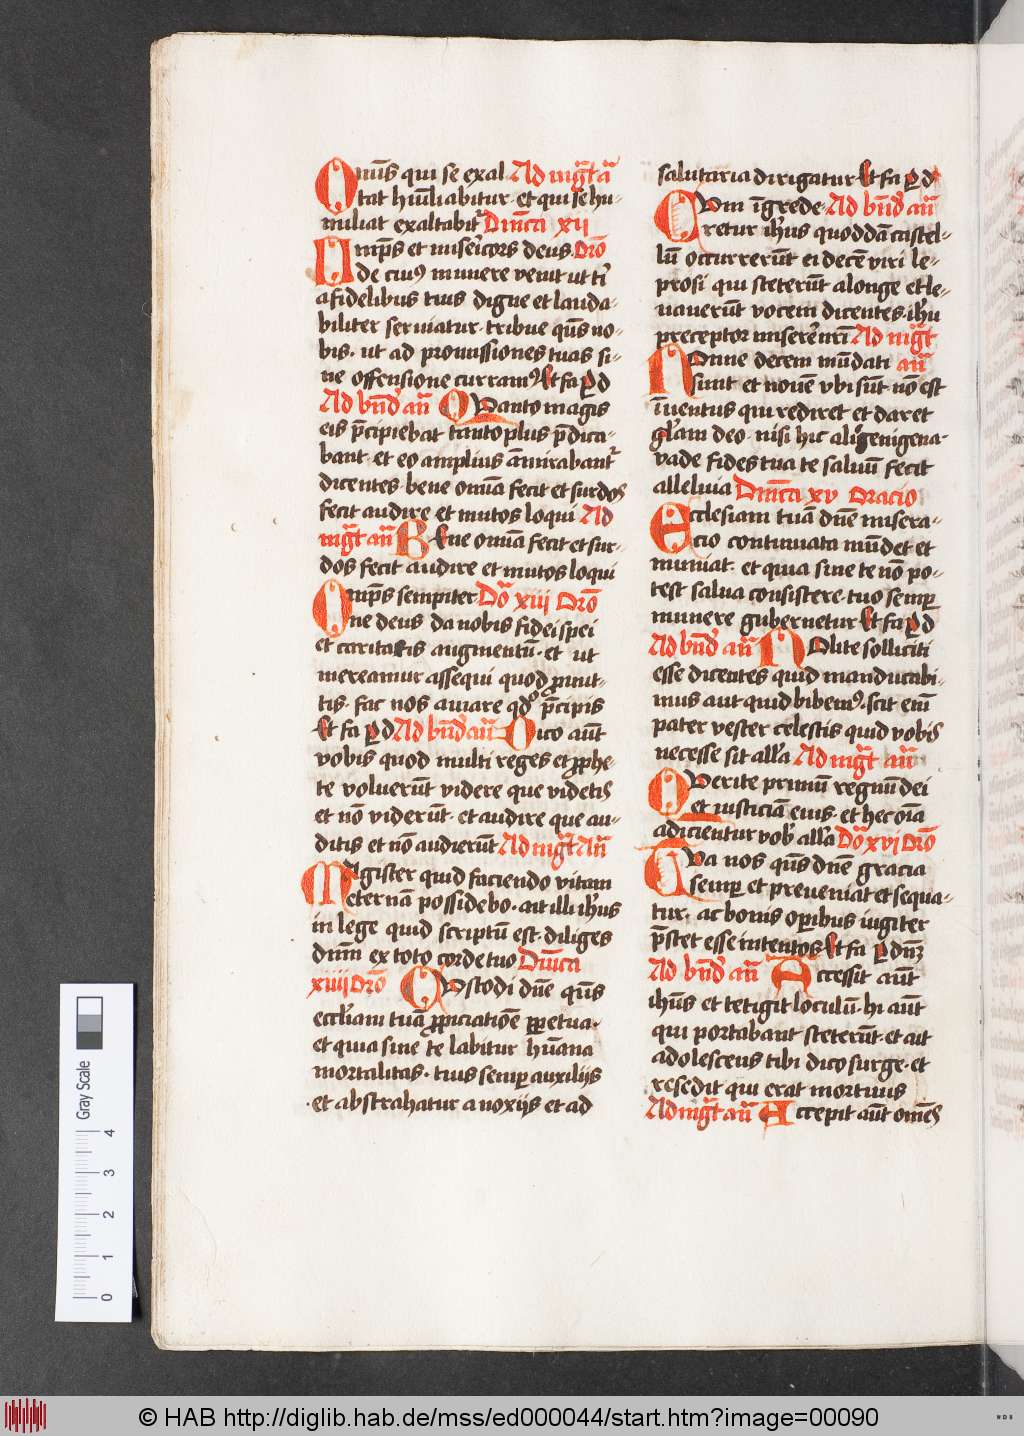 Om̄s qui se exal Ad mg̅t a̅
tat hūiliabitur · et qui se hu-
miliat exaltabit᷑ Dn̄ica xii
Omp̄s et miserīcors deus Oro̅
de cui⁹ munere venit ut ti̅
a fidelibus tuis digne et lauda-
biliter seruiatur · tribue qūs no-
bis · ut ad promissiones tuas si-
ne offensione curram⁹ Et fa ꝑ d
Ad bn̄d an̄ Quanto magis
eis p̄cipiebat tanto plus p̄dica-
bant · et eo amplius āmirabant᷑
dicentes · bene omīa fecit et surdos
fecit audire et mutos loqui Ad
mg̅t an̄ Bene omīa fecit et sur-
dos fecit audire et mutos loqui
Omp̄s sempiter Do̅ xiii Oro̅
ne deus da nobis fidei spei
et caritatis augmentū · et ut
mereamur assequi quod ꝓmit-
tis · fac nos amare qd̕ p̄cipis
Et fa ꝑ d Ad bn̄d an̄ Dico aūt
vobis quod multi reges et ꝓphe-
te voluerūt videre que videtis
et nō viderūt · et audire que au-
ditis et nō audierūt Ad mg̅t An̄
Magister quid faciendo vitam
eternā possidebo · ait illi ih̄us
in lege quid scriptū est · diliges
dn̄m ex toto corde tuo Dn̄ica
xiiii Oro̅ Custodi dn̄e qūs
eccl̄iam tuā ꝓpiciatiōe ꝑpetua ·
et quia sine te labitur hūana
mortalitas · tuis semꝑ auxiliis
· et abstrahatur a noxiis et ad
salutaria dirigatur Et fa ꝑ d
Cum īgrede Ad bn̄d an̄
retur ih̄us quoddā castel-
lū occurrerūt ei decē viri le-
prosi qui steterūt a longe et le-
vauerūt vocem dicentes · ih̄u
preceptor miserēnr̄i Ad mg̅t
Nonne decem mūdati an̄
sunt et nouē vbi sūt nō est
īuentus qui rediret et daret
gl̄am deo · nisi hic aligenigena ·
vade fides tua te saluū fecit
alleluia Dn̄ica xv Oracio
Ecclesiam tuā dn̄e misera-
cio continuata mūdet et
muniat · et quia sine te nō po-
test salua consistere · tuo semꝑ
munere gubernetur Et fa ꝑ d
Ad bn̄d an̄ Nolite solliciti
esse dicentes quid manducabi-
mus aut quid bibem⁹ · scit eni̅
pater vester celestis quid vobis
necesse sit all̄a Ad mg̅t an̄
Querite primū regnū dei
et iusticiā eius · et hec oīa
adicientur vob̄ all̄a Do̅ xvi Oro̅
Tua nos qūs dn̄e gracia
semꝑ et preueniat et sequa-
tur · ac bonis oꝑibus iugiter
p̄stet esse intentos Et fa ꝑ dn̄ꝫ
Ad bn̄d an̄ Accessit aūt
ih̄us et tetigit loculū · hi aūt
qui portabant steterūt · et ait
adolescens tibi dico surge · et
resedit qui erat mortuus
Ad mg̅t an̄ Accepit aūt omēs
Gray Scale
0 1 2 3 4
© HAB http://diglib.hab.de/mss/ed000044/start.htm?image=00090